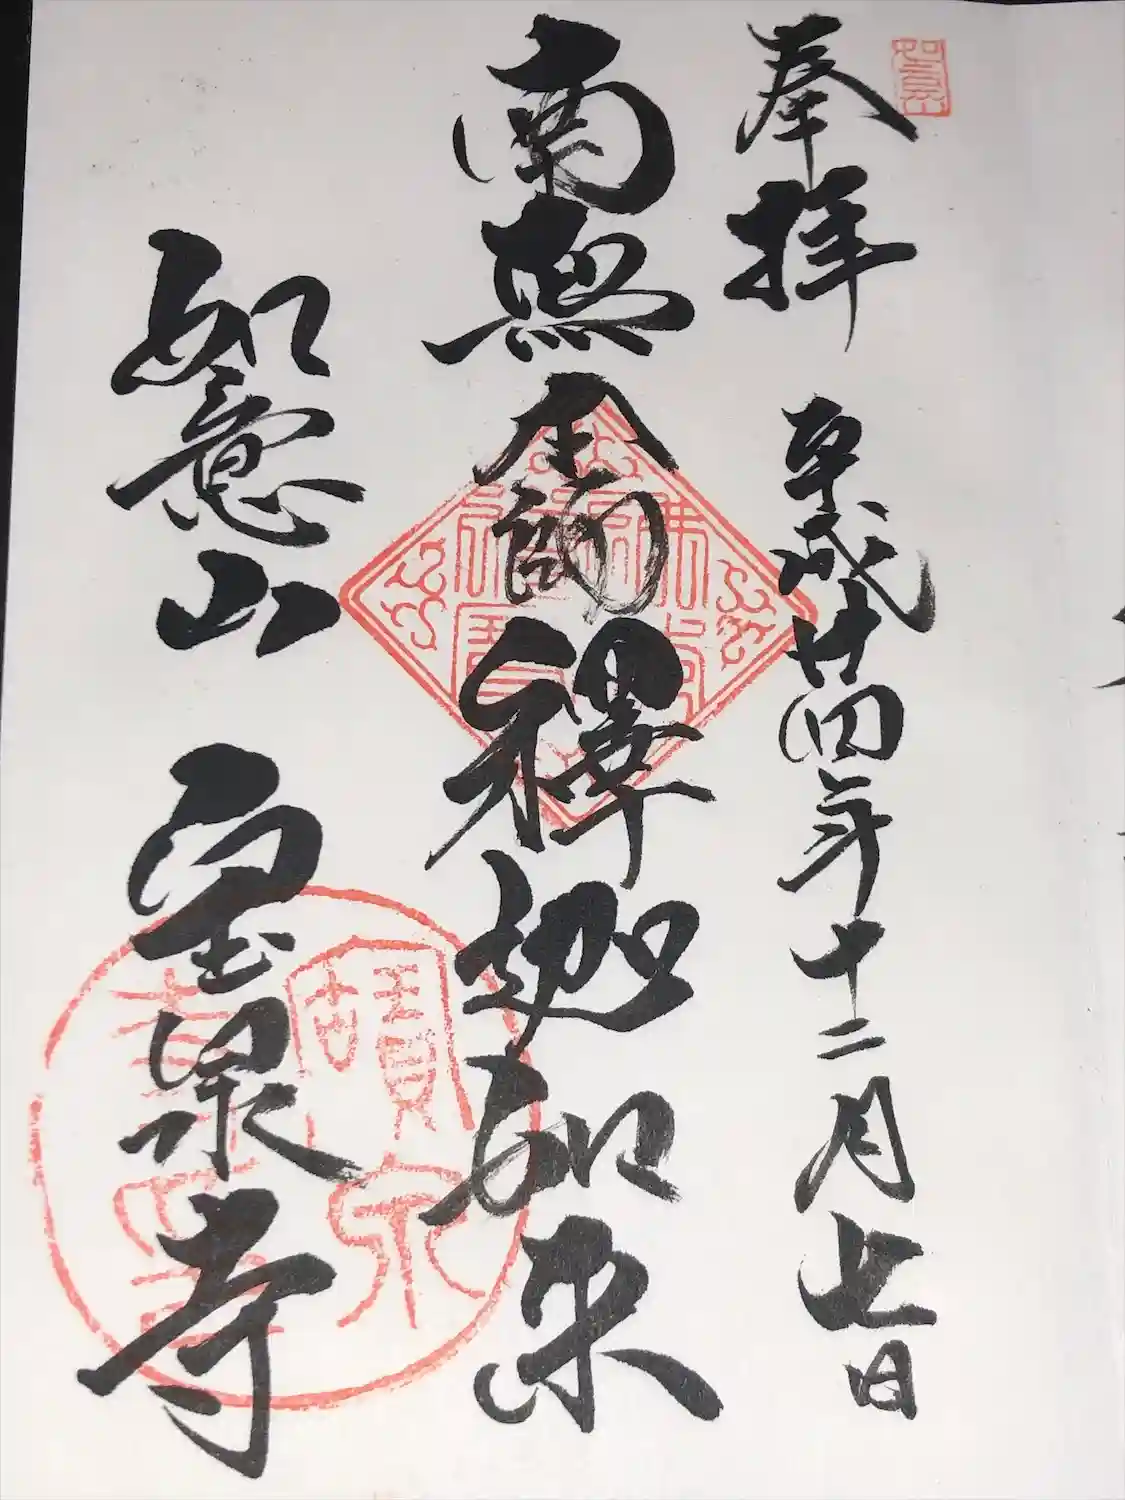 如意
奉拝
平成廿四年十二月七日
南無本師釋迦如来
如意山 宝泉寺